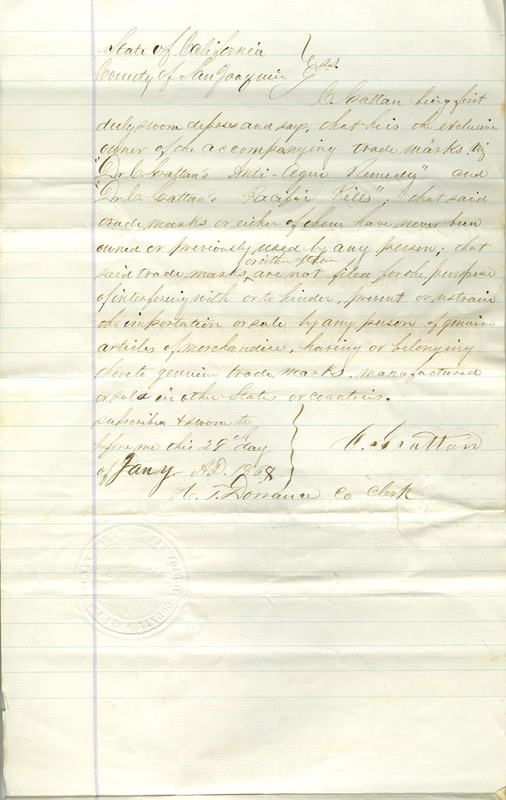 State of California } ss.
County of San Joaquin }
C. Grattan being first
duly sworn deposes and says; that he is the exclusive
owner of the accompanying trade marks. viz
"Dr. C. Grattan's Anti-Ague Remedy" and
"Dr. C. Grattan's Pacific Pills"; that said
trade marks or either of them have never been
owned or previously used by any person; that
or either of them
said trade marks ^ are not filed for the purpose
of interfereing with or to hinder, prevent or restrain
the importation or sale by any person of genuine
articles of merchandise, having or belonging
thereto genuine trade marks, manufactured
or sold in other States or countries.
subscribed & sworn to
before me this 28th day } C. Grattan
of Jany AD. 1868
A. T. Dorrance Co Clerk